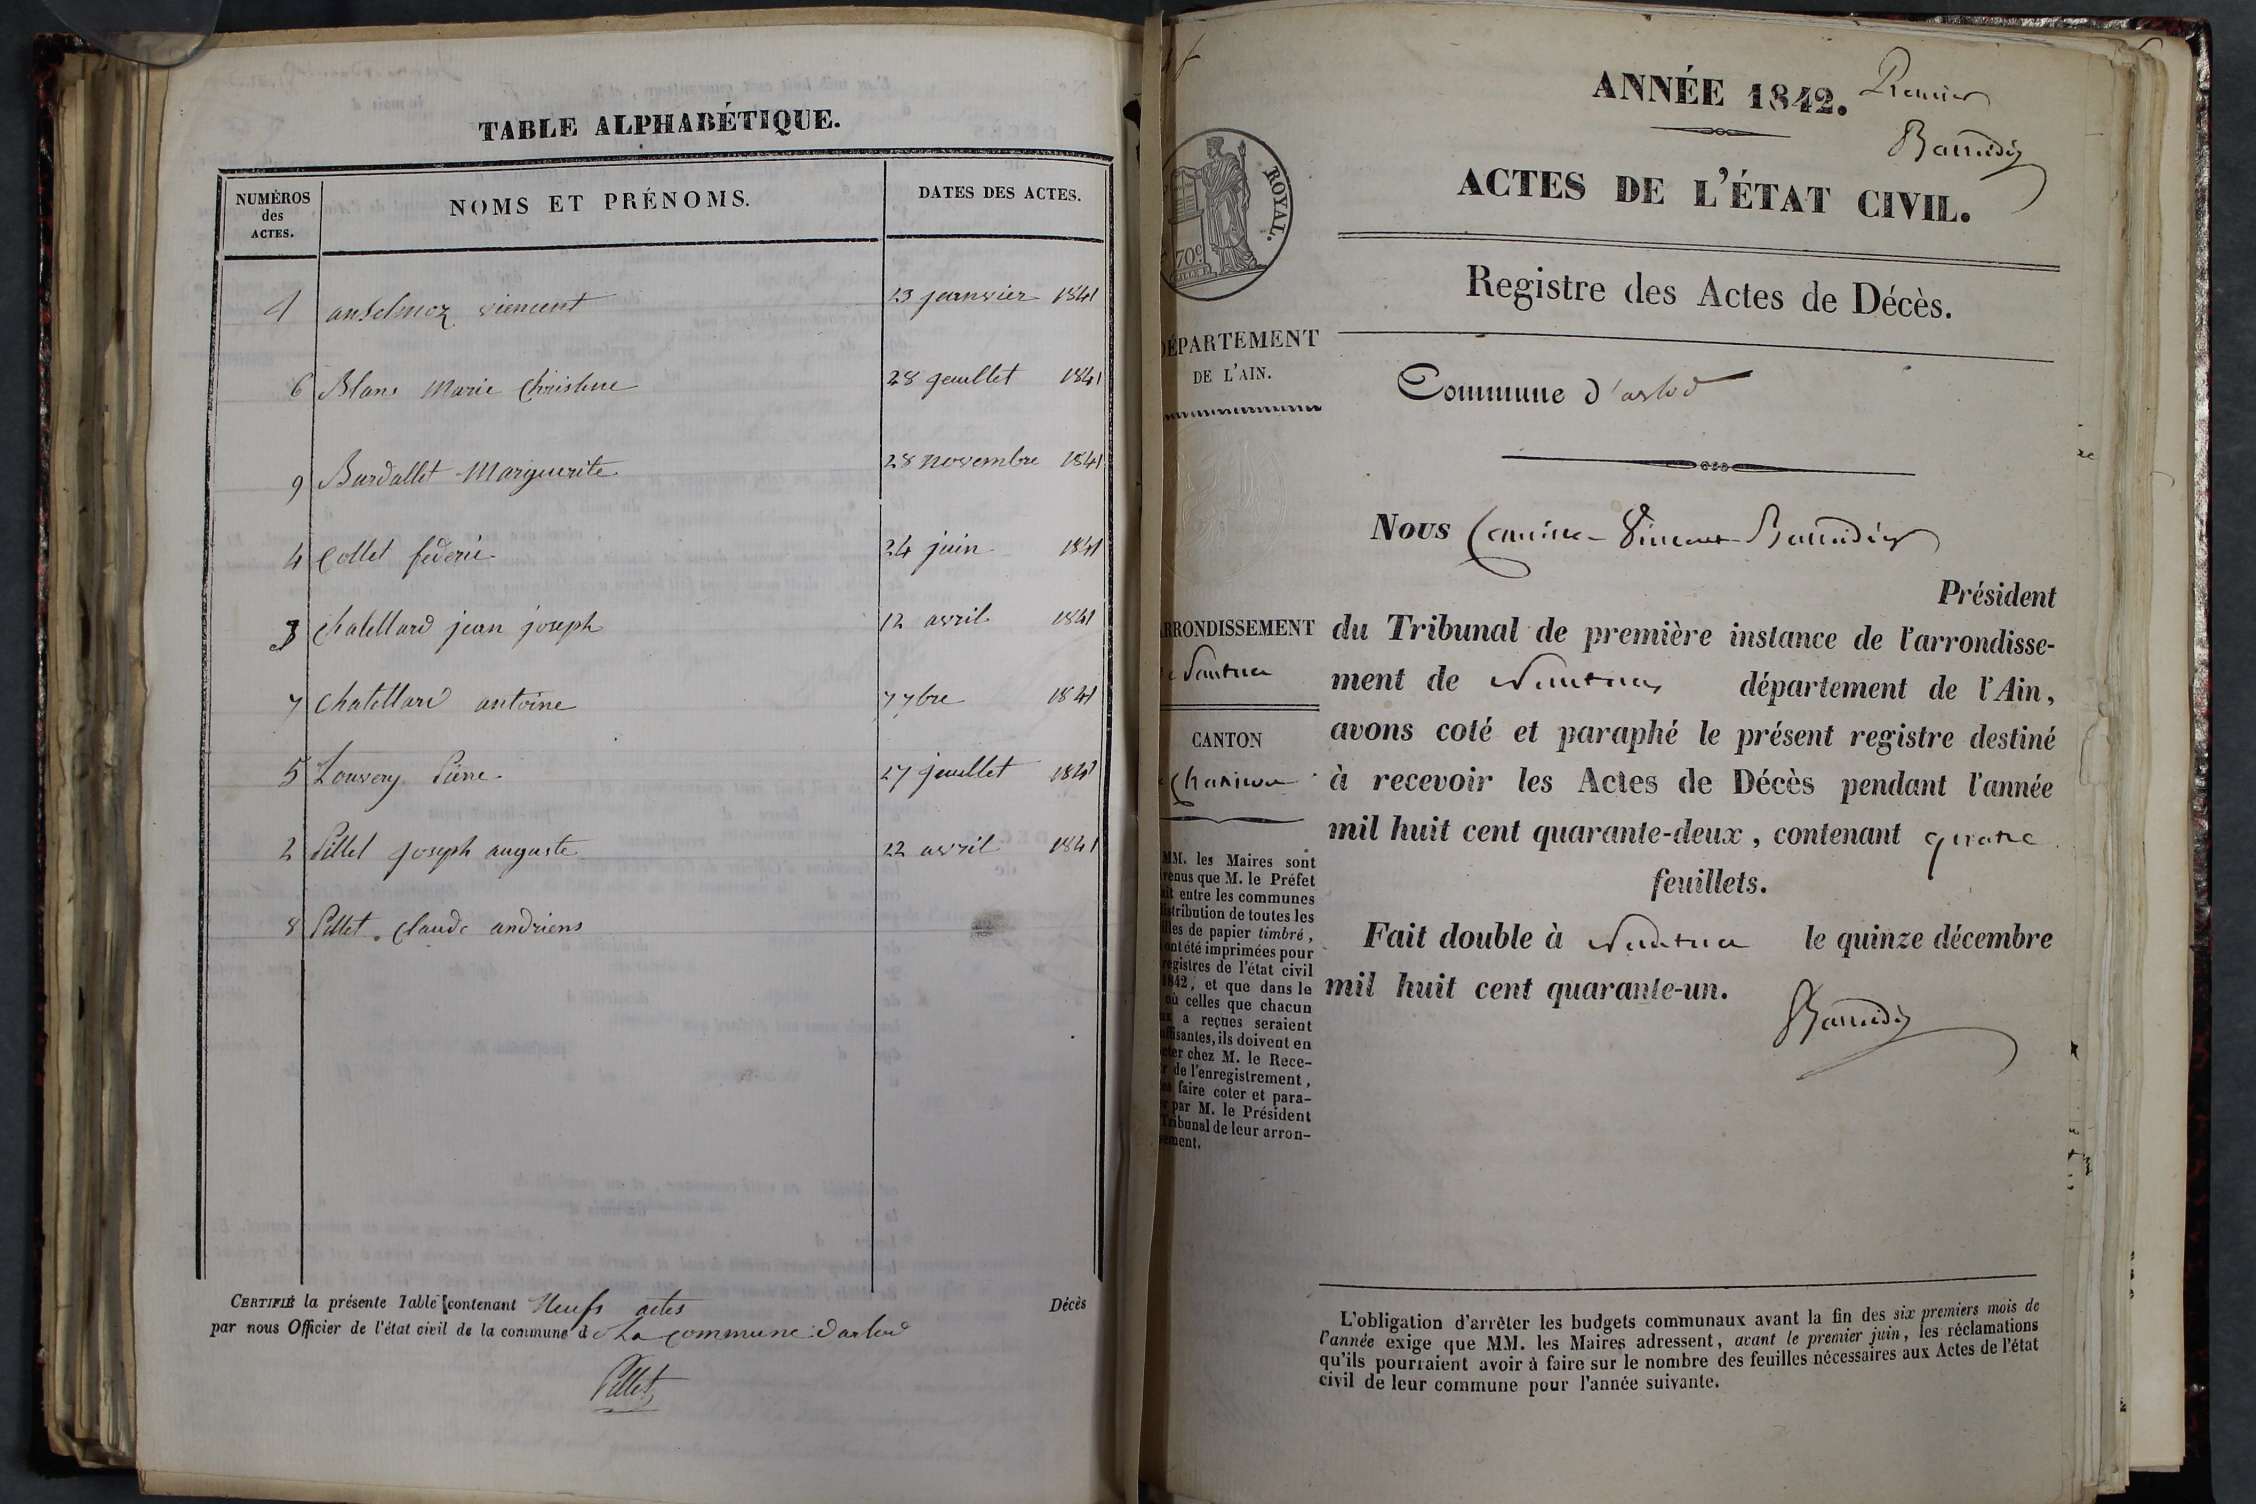 TABLE ALPHABÉTIQUE.
NUMÉROS des ACTES.
NOMS ET PRÉNOMS.
DATES DES ACTES.
1 anselmoz vincent 23 janvier 1841
6 Blanc Marie Christine 28 jeuillet 1841
9 Burdallet Marguerite 28 novembre 1841
4 Collet féderic 24 juin 1841
3 chatellard jean joseph 12 avril 1841
7 chatellard antoine 7 7bre 1841
5 Louvery Pierre 27 jeuillet 1841
2 Pillet joseph auguste 22 avril 1841
8 Pillet claude andriens
CERTIFIÉ la présente Table contenant Neufs actes Décès
par nous Officier de l'état civil de la commune d La commune darlod
Pillet
ANNÉE 1842.
Premier
ACTES DE L'ÉTAT CIVIL.
Registre des Actes de Décès.
ROYAL.
70c
DÉPARTEMENT
DE L'AIN.
Commune d'arlod
Nous Vincent
Président
du Tribunal de première instance de l'arrondisse-
ment de Nantua département de l'Ain,
avons coté et paraphé le présent registre destiné
à recevoir les Actes de Décès pendant l'année
mil huit cent quarante-deux, contenant quatre
feuillets.
Fait double à Nantua le quinze décembre
mil huit cent quarante-un.
RRONDISSEMENT
Nantua
CANTON
MM. les Maires sont
venus que M. le Préfet
ait entre les communes
istribution de toutes les
illes de papier timbré,
ont été imprimées pour
registres de l'état civil
1842, et que dans le
où celles que chacun
ux a reçues seraient
uffisantes, ils doivent en
eter chez M. le Rece-
r de l'enregistrement,
es faire coter et para-
r par M. le Président
Tribunal de leur arron-
sement.
L'obligation d'arrêter les budgets communaux avant la fin des six premiers mois de
l'année exige que MM. les Maires adressent, avant le premier juin, les réclamations
qu'ils pourraient avoir à faire sur le nombre des feuilles nécessaires aux Actes de l'état
civil de leur commune pour l'année suivante.